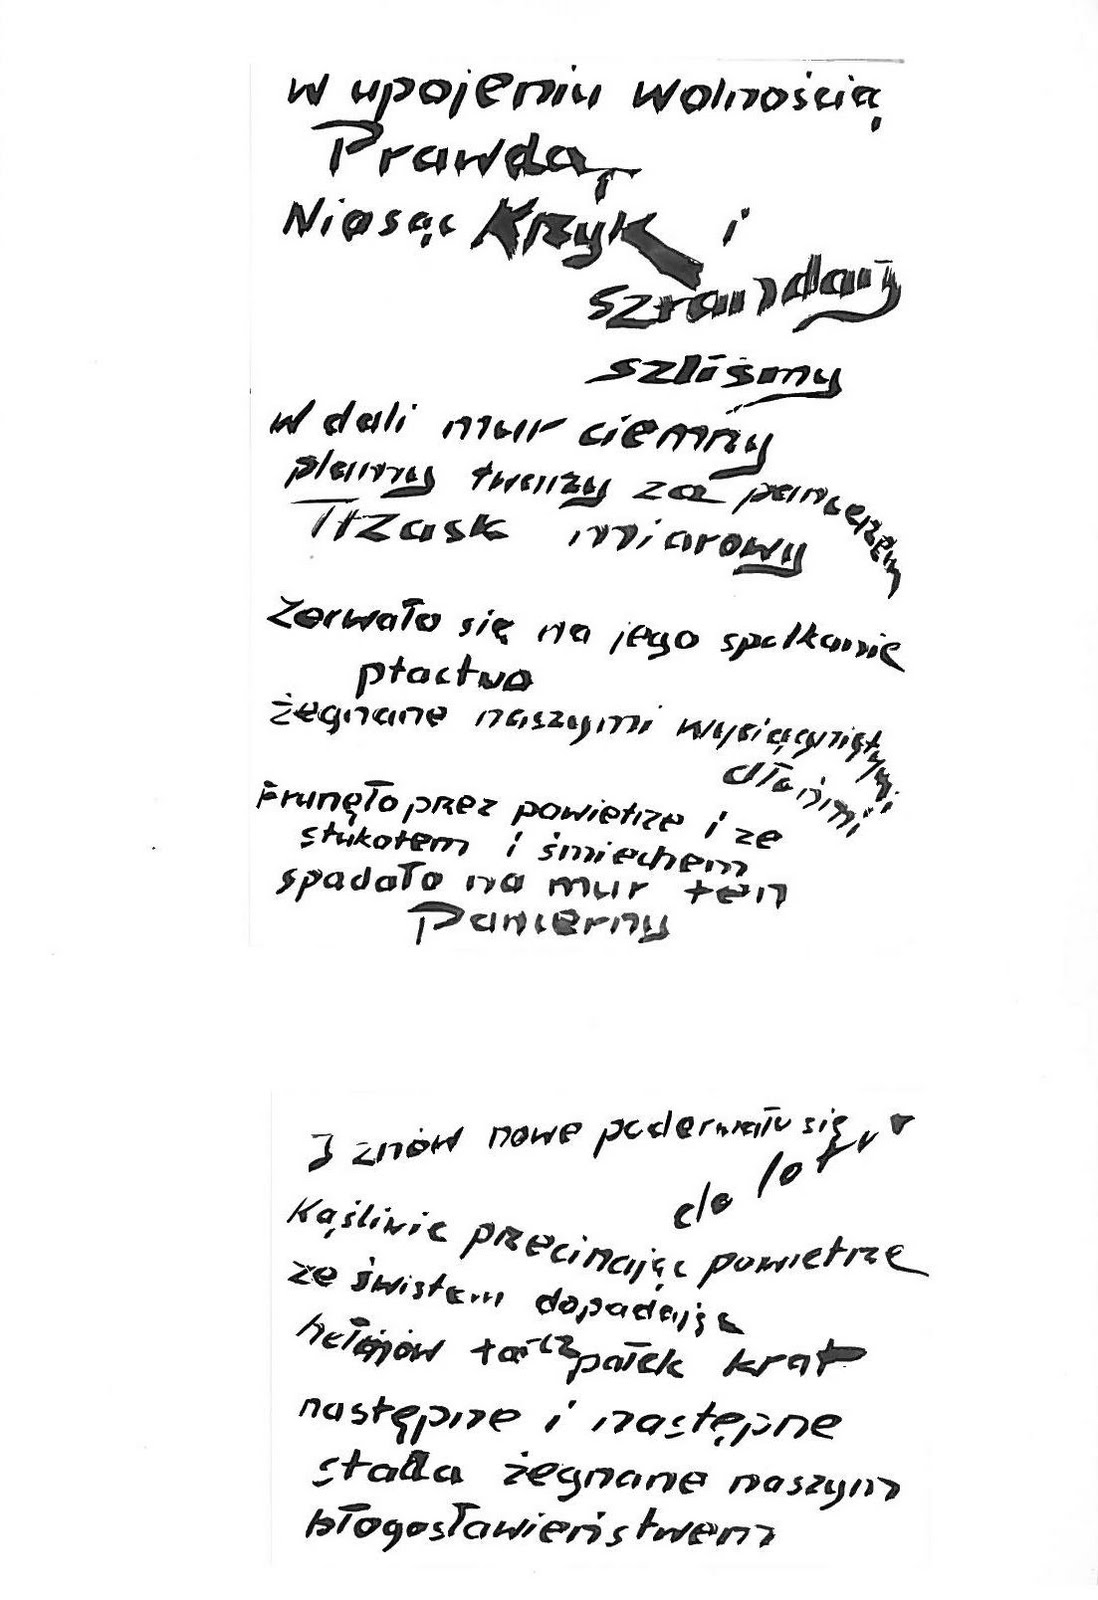 w upojeniu wolnością
Prawdą
Niosąc Krzyk i
sztandary
szliśmy
w dali mur ciemny
plamy twarzy za pancerzem
Trzask miarowy
Zerwało się na jego spotkanie
ptactwo
żegnane naszymi wyciągniętymi
dłońmi
Frunęło przez powietrze i ze
stukotem i śmiechem
spadało na mur ten
Pancerny
I znów nowe poderwało się
do lotu
Kąśliwie przecinając powietrze
ze świstem dopadając
hełmów tarcz pałek krat
następne i następne
stada żegnane naszym
błogosławieństwem